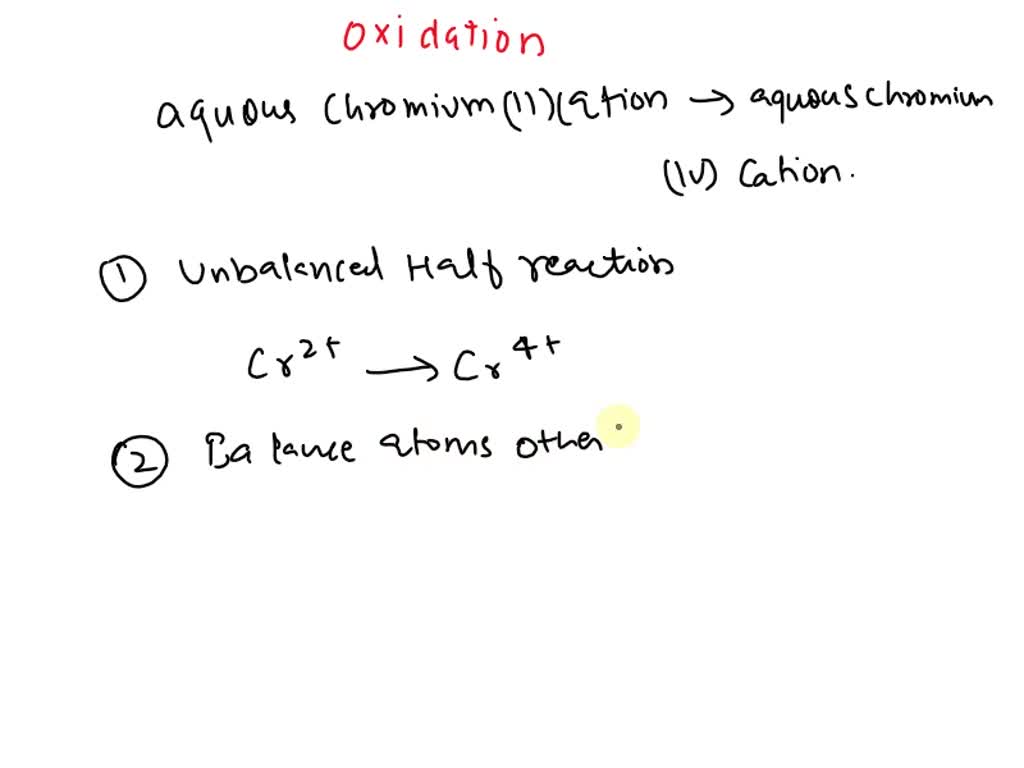 Oxidation
aquous Chromium(II)Cation → aquous chromium
(IV) Cation.
① Unbalanced Half reaction
Cr²⁺ → Cr⁴⁺
② Balance atoms other